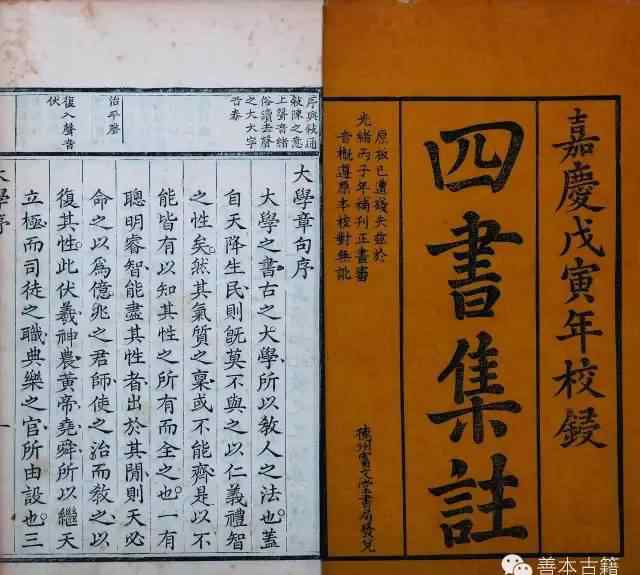 嘉慶戊寅年校鋟
四書集註
原板已遭殘失茲於
光緒丙子年補刊正書審
音概遵原本校對無訛
德州文堂書局發兌
序與敘通
敘陳之意
上聲音緒
俗讀去聲
之大大字
音泰
治平聲
復入聲音
伏
大學章句序
大學之書古之大學所以教人之法也。蓋
自天降生民則旣莫不與之以仁義禮智
之性矣。然其氣質之稟或不能齊是以不
能皆有以知其性之所有而全之也。一有
聰明睿智能盡其性者出於其閒則天必
命之以爲億兆之君師使之治而敎之以
復其性。此伏羲神農黃帝堯舜所以繼天
立極而司徒之職典樂之官所由設也。三
大學序
一
善本古籍